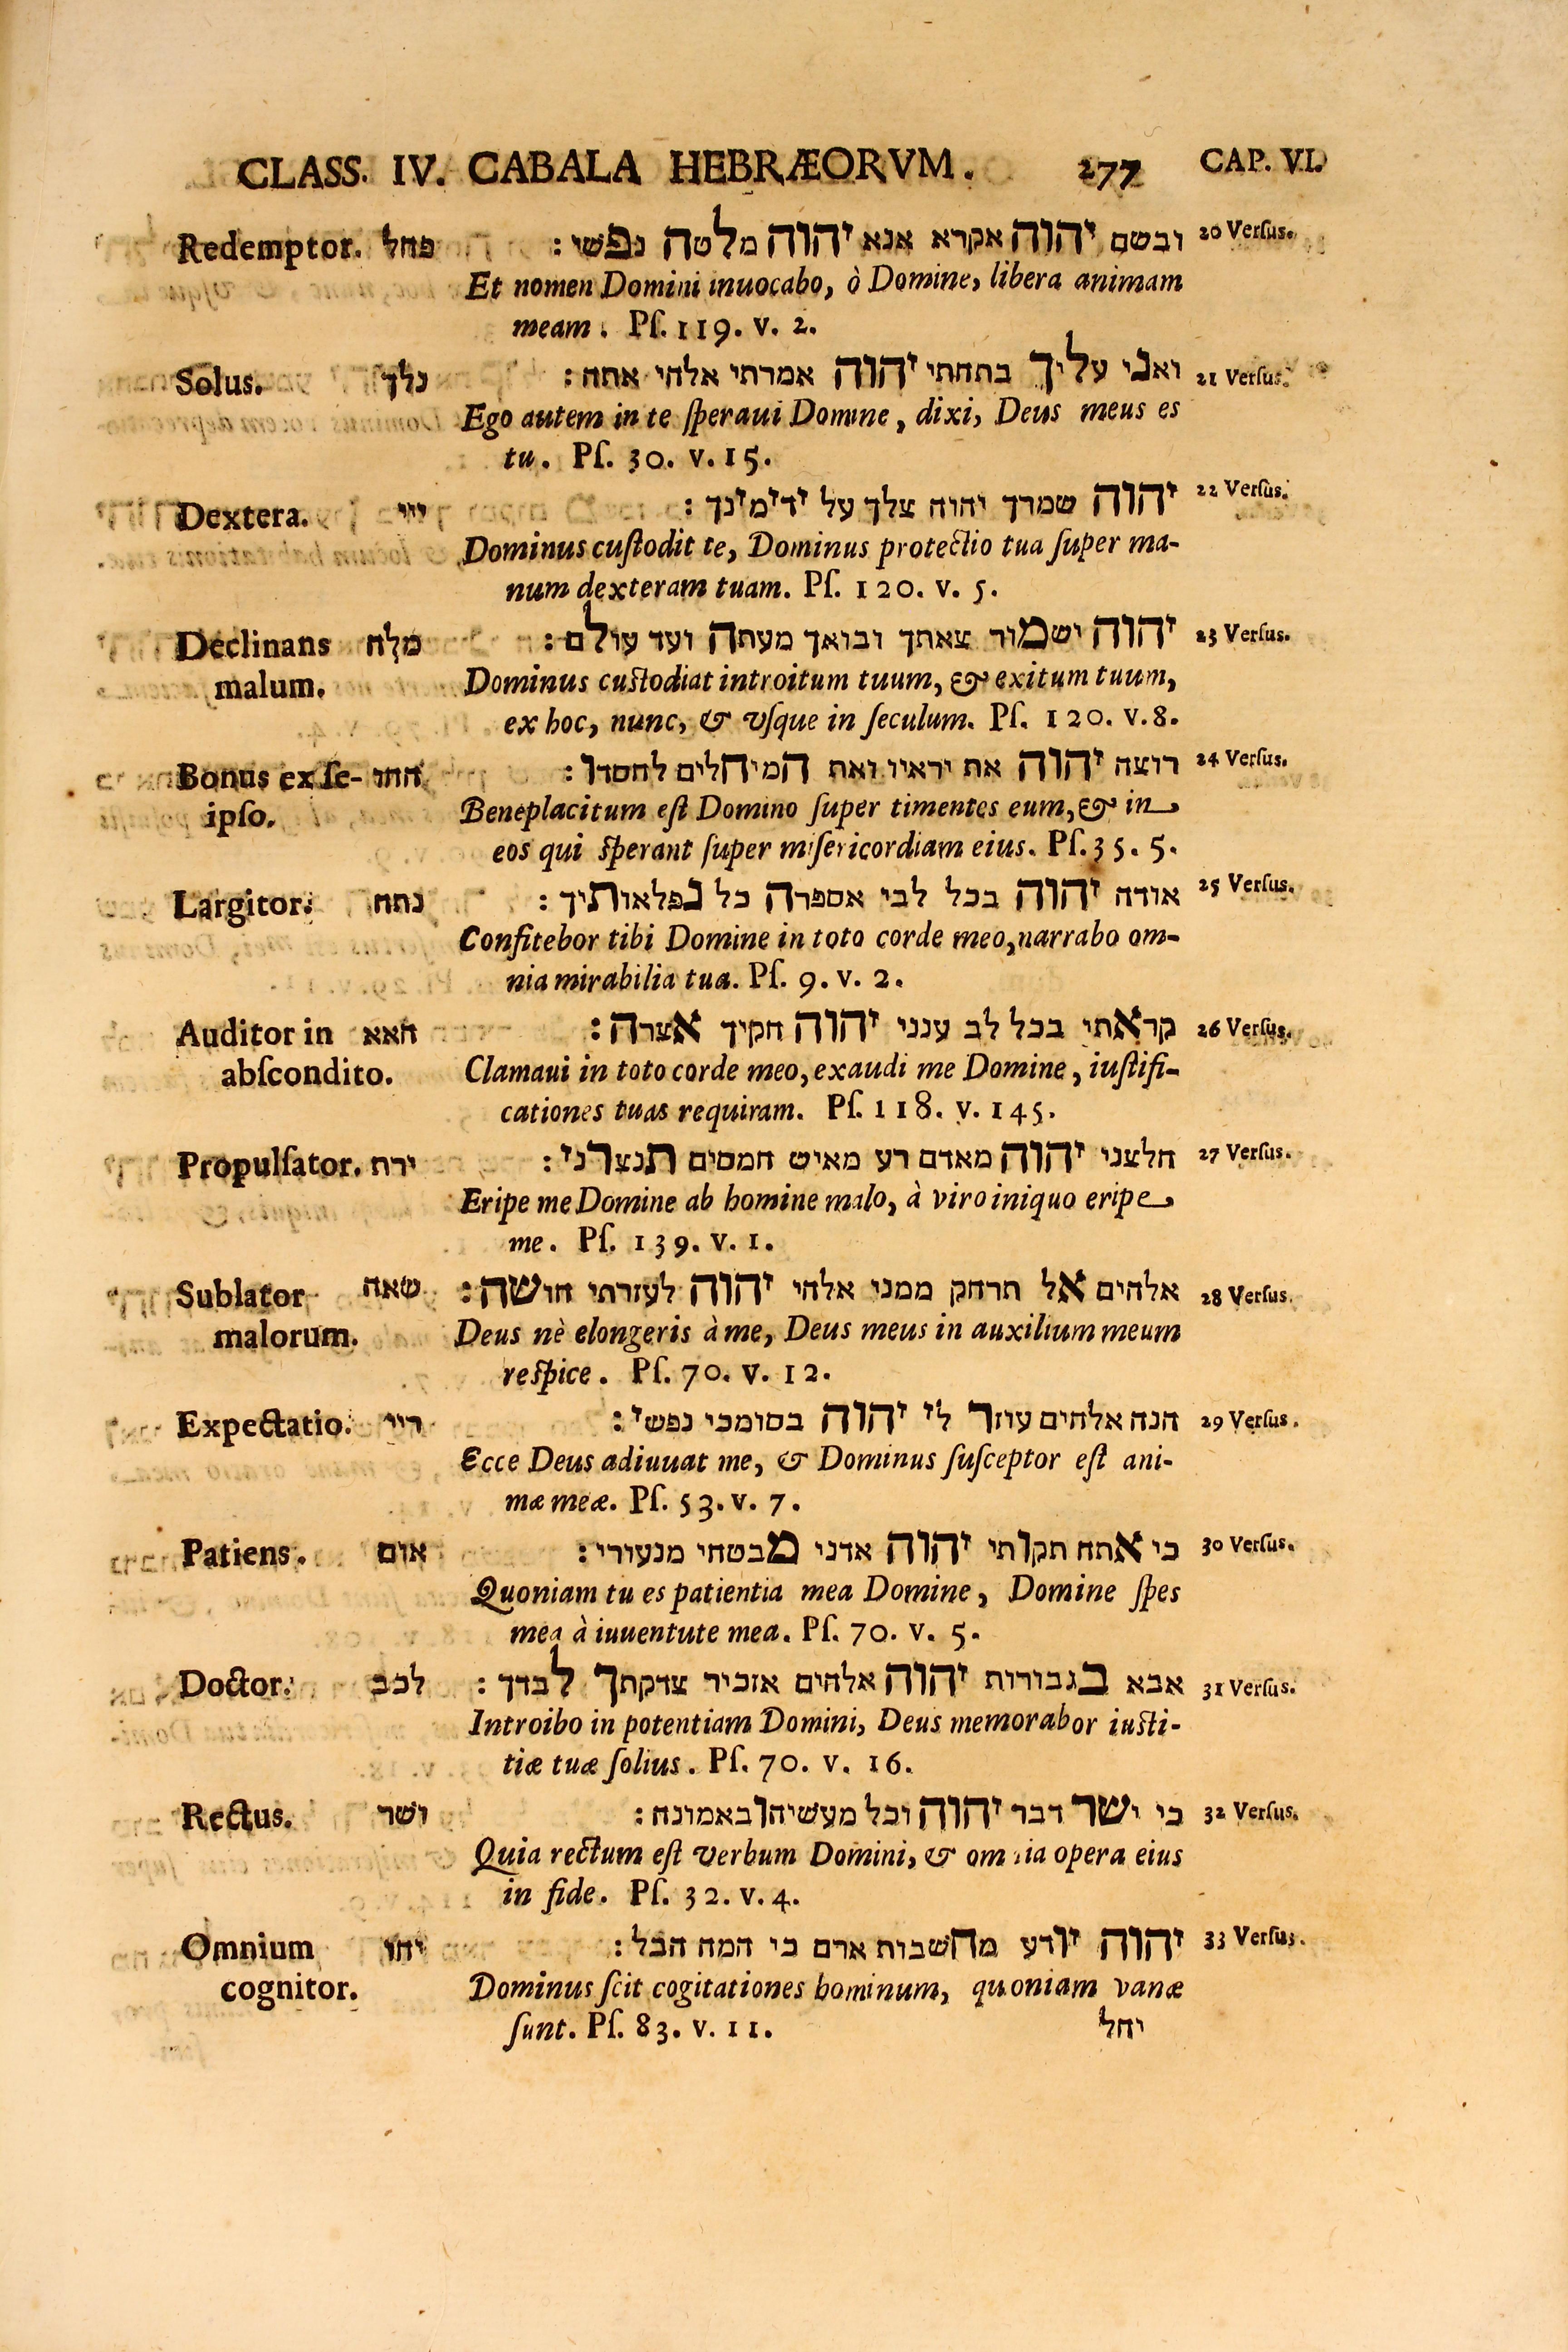 CLASS. IV. CABALA HEBRÆORVM. 277 CAP. VI.
Redemptor. פחל ובשם יהוה אקרא אנא יהוה מלטה נפשי : 20 Verſus.
Et nomen Domini inuocabo, ò Domine, libera animam
meam. Pſ. 119. v. 2.
Solus. נלך ואני עליך בתחתי יהוה אמרתי אלחי אתה : 21 Verſus.
Ego autem in te ſperaui Domine, dixi, Deus meus es
tu. Pſ. 30. v. 15.
Dextera. ייי יהוה שמרך יהוה צלך על ידימינך : 22 Verſus.
Dominus cuſtodit te, Dominus protectio tua ſuper ma-
num dexteram tuam. Pſ. 120. v. 5.
Declinans מלח יהוה ישמור צאתך ובואך מעתה ועד עולם : 23 Verſus.
malum. Dominus cuſtodiat introitum tuum, & exitum tuum,
ex hoc, nunc, & vſque in ſeculum. Pſ. 120. v. 8.
Bonus ex ſe- חהו רוצה יהוה את יראיו ואת המיחלים לחסדו : 24 Verſus.
ipſo. Beneplacitum eſt Domino ſuper timentes eum, & in
eos qui ſperant ſuper miſericordiam eius. Pſ. 35. 5.
Largitor. נתה אודה יהוה בכל לבי אספרה כל נפלאותיך : 25 Verſus.
Confitebor tibi Domine in toto corde meo, narrabo om-
nia mirabilia tua. Pſ. 9. v. 2.
Auditor in האא קראתי בכל לב ענני יהוה חקיך אצרה : 26 Verſus.
abſcondito. Clamaui in toto corde meo, exaudi me Domine, iuſtifi-
cationes tuas requiram. Pſ. 118. v. 145.
Propulſator. ירת חלצני יהוה מאדם רע מאיש חמסים תנצרני : 27 Verſus.
Eripe me Domine ab homine malo, à viro iniquo eripe
me. Pſ. 139. v. 1.
Sublator שאה אלהים אל תרחק ממני אלהי יהוה לעזרתי חושה : 28 Verſus.
malorum. Deus nè elongeris à me, Deus meus in auxilium meum
reſpice. Pſ. 70. v. 12.
Expectatio. ריי הנה אלהים עוזר לי יהוה בסומכי נפשי : 29 Verſus.
Ecce Deus adiuuat me, & Dominus ſuſceptor eſt ani-
mæ meæ. Pſ. 53. v. 7.
Patiens. אום כי אתה תקותי יהוה אדני מבטחי מנעורי : 30 Verſus.
Quoniam tu es patientia mea Domine, Domine ſpes
mea à iuuentute mea. Pſ. 70. v. 5.
Doctor. לכב אבא בגבורות יהוה אלהים אזכיר צדקתך לבדך : 31 Verſus.
Introibo in potentiam Domini, Deus memorabor iuſti-
tiæ tuæ ſolius. Pſ. 70. v. 16.
Rectus. ושר כי ישר דבר יהוה וכל מעשיהו באמונה : 32 Verſus.
Quia rectum eſt verbum Domini, & omnia opera eius
in fide. Pſ. 32. v. 4.
Omnium יחו יהוה יודע מחשבות ארם כי המה הבל : 33 Verſus.
cognitor. Dominus ſcit cogitationes hominum, quoniam vanæ
ſunt. Pſ. 83. v. 11. יחל